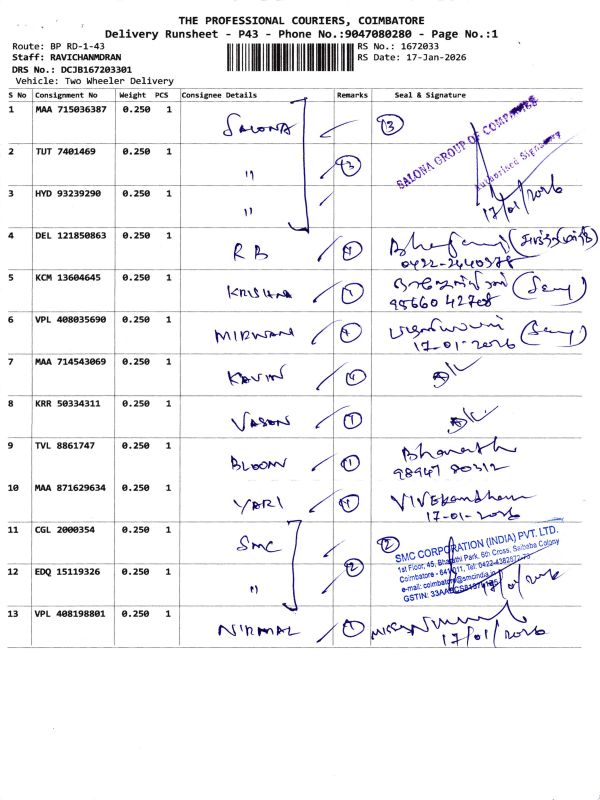 THE PROFESSIONAL COURIERS, COIMBATORE
Delivery Runsheet - P43 - Phone No.:9047080280 - Page No.:1
Route: BP RD-1-43
RS No.: 1672033
Staff: RAVICHANMDRAN
RS Date: 17-Jan-2026
DRS No.: DCJB167203301
Vehicle: Two Wheeler Delivery
S No Consignment No Weight PCS Consignee Details Remarks Seal & Signature
1 MAA 715036387 0.250 1 SALONA 3
SALONA GROUP OF COMPANIES
Authorised Signatory
2 TUT 7401469 0.250 1 " 3
3 HYD 93239290 0.250 1 "
17/01/2026
4 DEL 121850863 0.250 1 RB 1
0422-2440978
5 KCM 13604645 0.250 1 KRISHNA 1
98660 42708
6 VPL 408035690 0.250 1 MIRWAN 1
17-01-2026
7 MAA 714543069 0.250 1 KAVIN
8 KRR 50334311 0.250 1 VASAN 1
9 TVL 8861747 0.250 1 BLOOM 1 Bharath
98947 80312
10 MAA 871629634 0.250 1 YARI 1
17-01-2026
11 CGL 2000354 0.250 1 SMC 2
SMC CORPORATION (INDIA) PVT. LTD.
1st Floor, 45, Bharathi Park, 6th Cross, Saibaba Colony
Coimbatore - 641 011, Tel: 0422-4382572-73
12 EDQ 15119326 0.250 1 " 2
17/01/2026
13 VPL 408198801 0.250 1 NIRMAL 1
17/01/2026